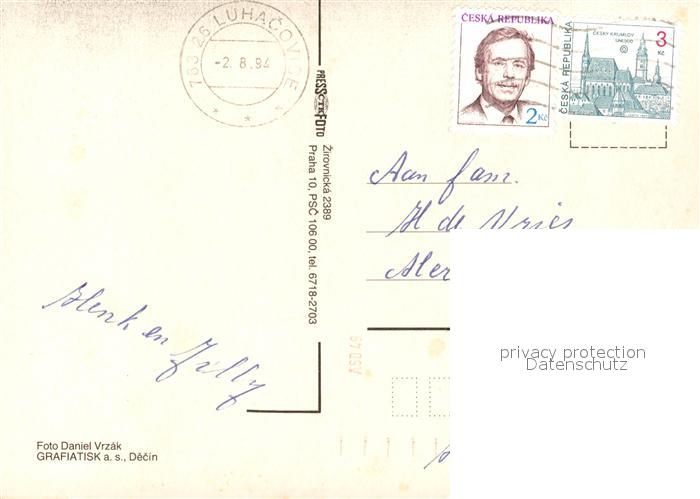 763 26 LUHAČOVICE 1
-2. 8. 94
ČESKÁ REPUBLIKA
2 Kč
ČESKÁ REPUBLIKA
ČESKÝ KRUMLOV
UNESCO
3
Kč
PRESSFOTO
Žirovnická 2389
Praha 10, PSČ 106 00, tel. 6718-2703
Aan fam.
H de Vries
Henk en
Foto Daniel Vrzák
GRAFIATISK a. s., Děčín
privacy protection
Datenschutz